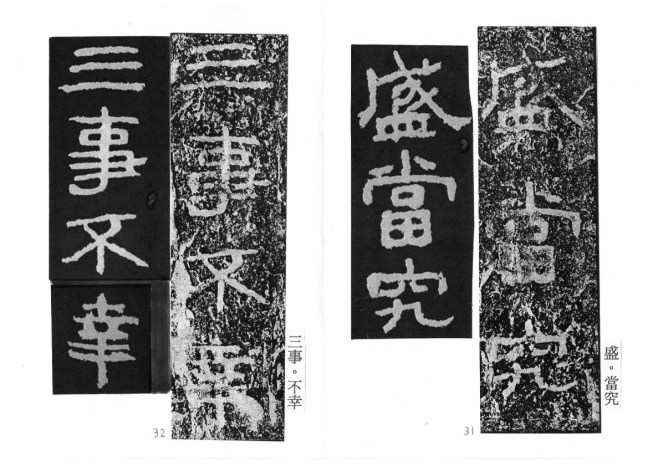 盛當究
盛當究
盛。當究
31
三事不幸
三事不幸
三事。不幸
32